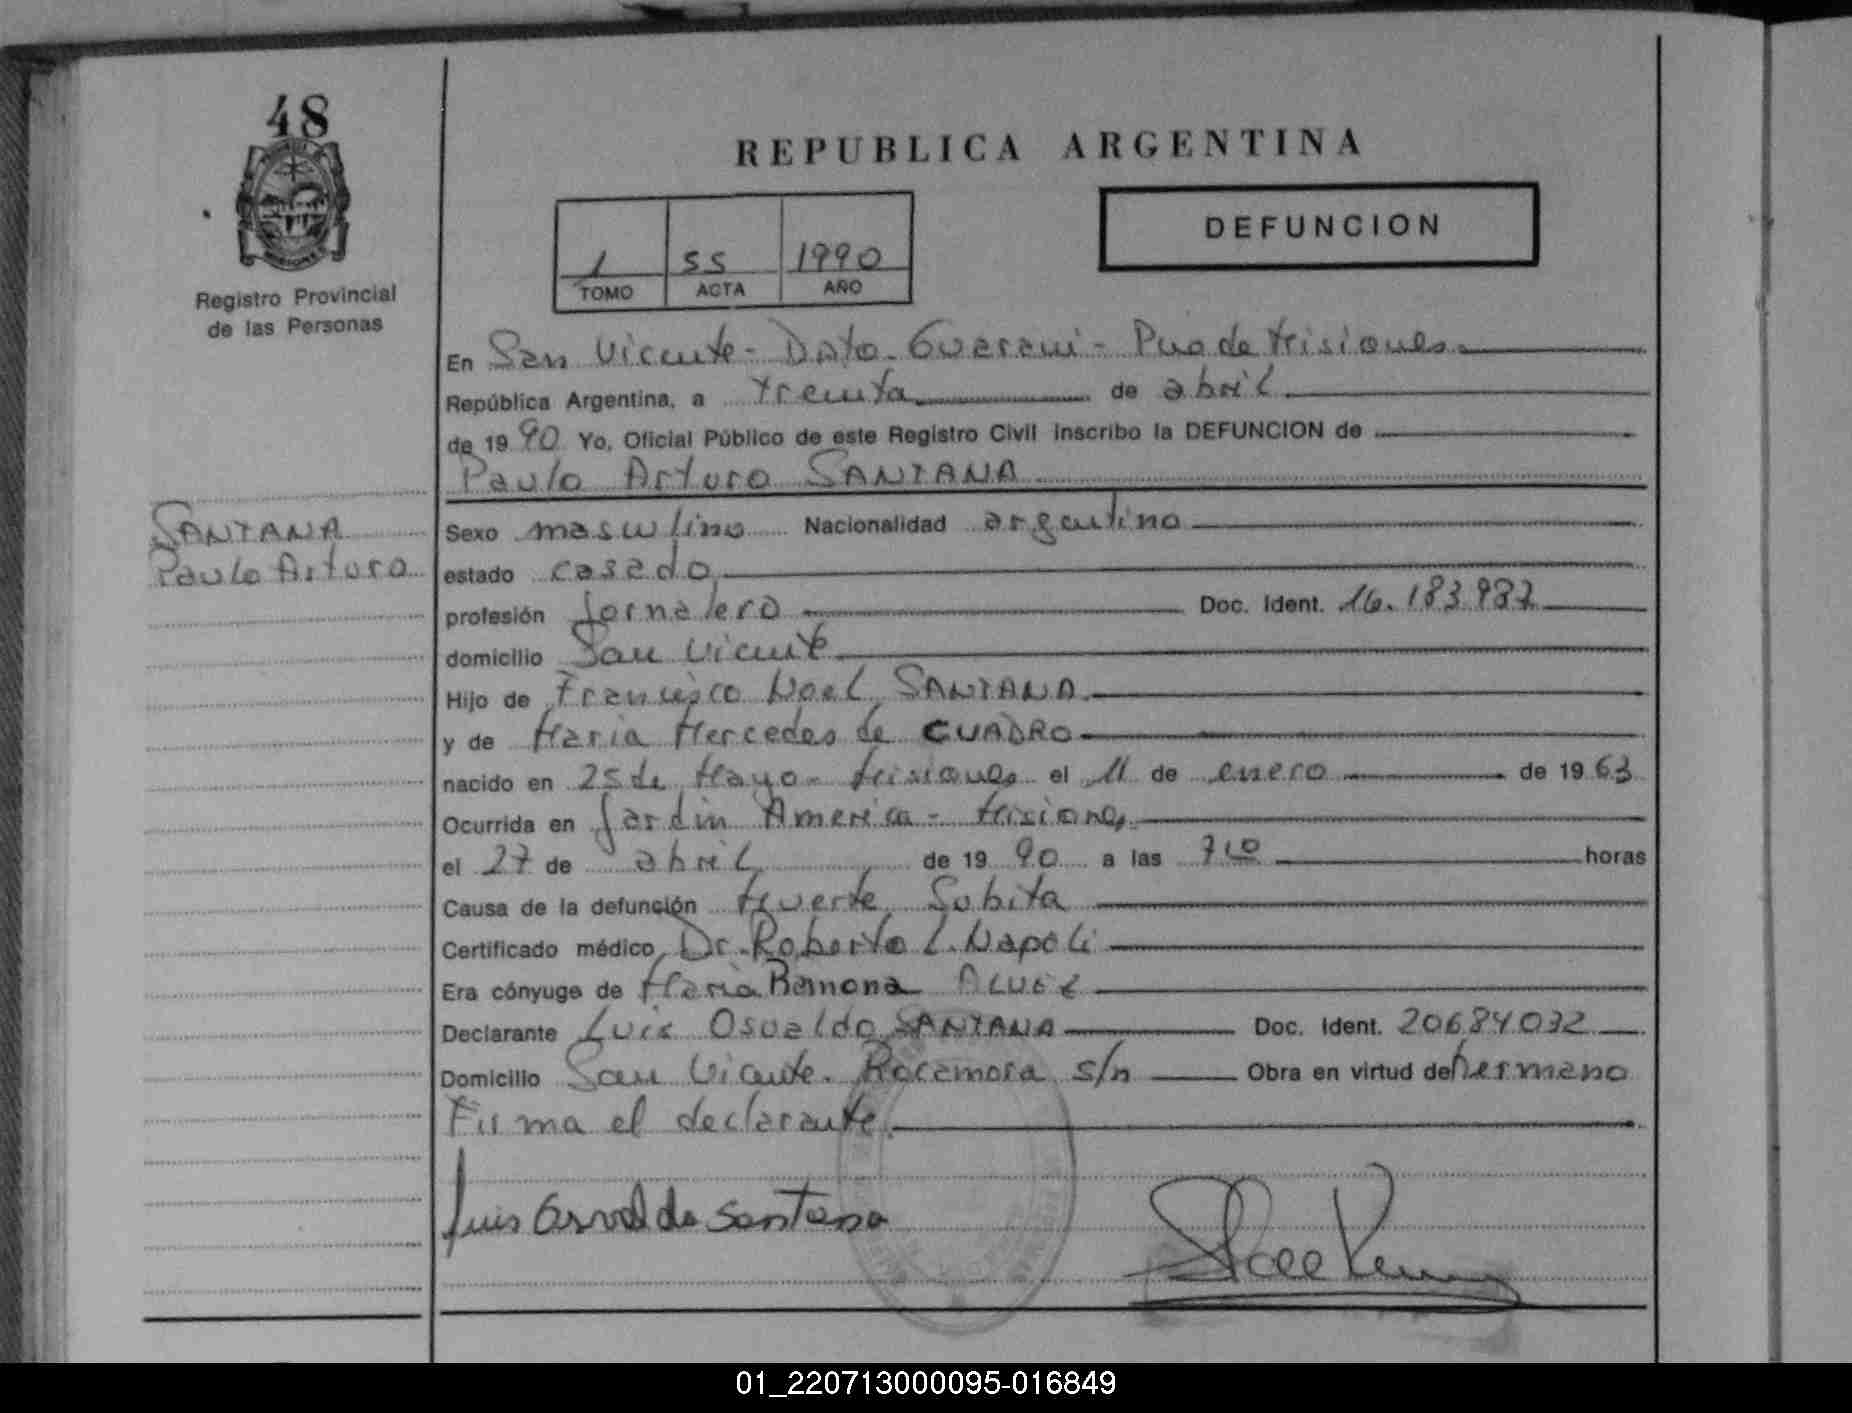 48
REPUBLICA ARGENTINA
DEFUNCION
1 55 1990
TOMO ACTA AÑO
Registro Provincial
de las Personas
En San Vicente - Dpto. Guarani - Pcia de Misiones
República Argentina, a treinta de abril
de 1990 Yo, Oficial Público de este Registro Civil inscribo la DEFUNCION de
Paulo Arturo SANTANA
SANTANA
Paulo Arturo
Sexo masculino Nacionalidad argentino
estado casado
profesión Jornalero Doc. Ident. 16.183.987
domicilio San Vicente
Hijo de Francisco Noel SANTANA
y de Maria Mercedes de CUADRO
nacido en 25 de Mayo - Misiones el 11 de enero de 1963
Ocurrida en Jardin America - Misiones
el 27 de abril de 1990 a las 7,10 horas
Causa de la defunción Muerte Subita
Certificado médico Dr. Roberto L. Napoli
Era cónyuge de Maria Ramona ALVEZ
Declarante Luis Osvaldo SANTANA Doc. Ident. 20684032
Domicilio San Vicente. Rocamora s/n Obra en virtud de hermano
Firma el declarante.
Luis Osvaldo Santana
01_220713000095-016849